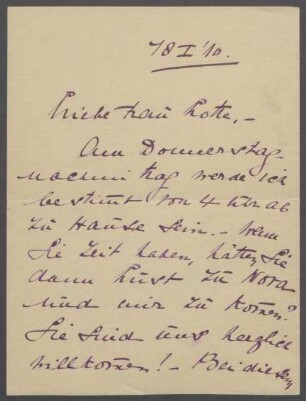 18 I '10.
Liebe Frau Lotte, –
Am Donnerstag-
nachmittag werde ich
bestimt von 4 Uhr ab
zu Hause sein. – Wenn
Sie Zeit haben, hätten Sie
dann Lust zu Nora
und mir zu komen?
Sie sind uns herzlich
willkomen! – Bei diesem